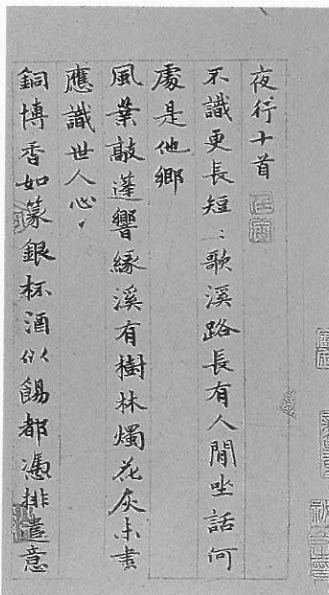 夜行十首
不識更長短〻歌溪路長有人間坐話何
處是他鄉
風葉敲蓬響緣溪有樹林燭花灰未盡
應識世人心
銅博香如篆銀杯酒似餳都憑排遣意